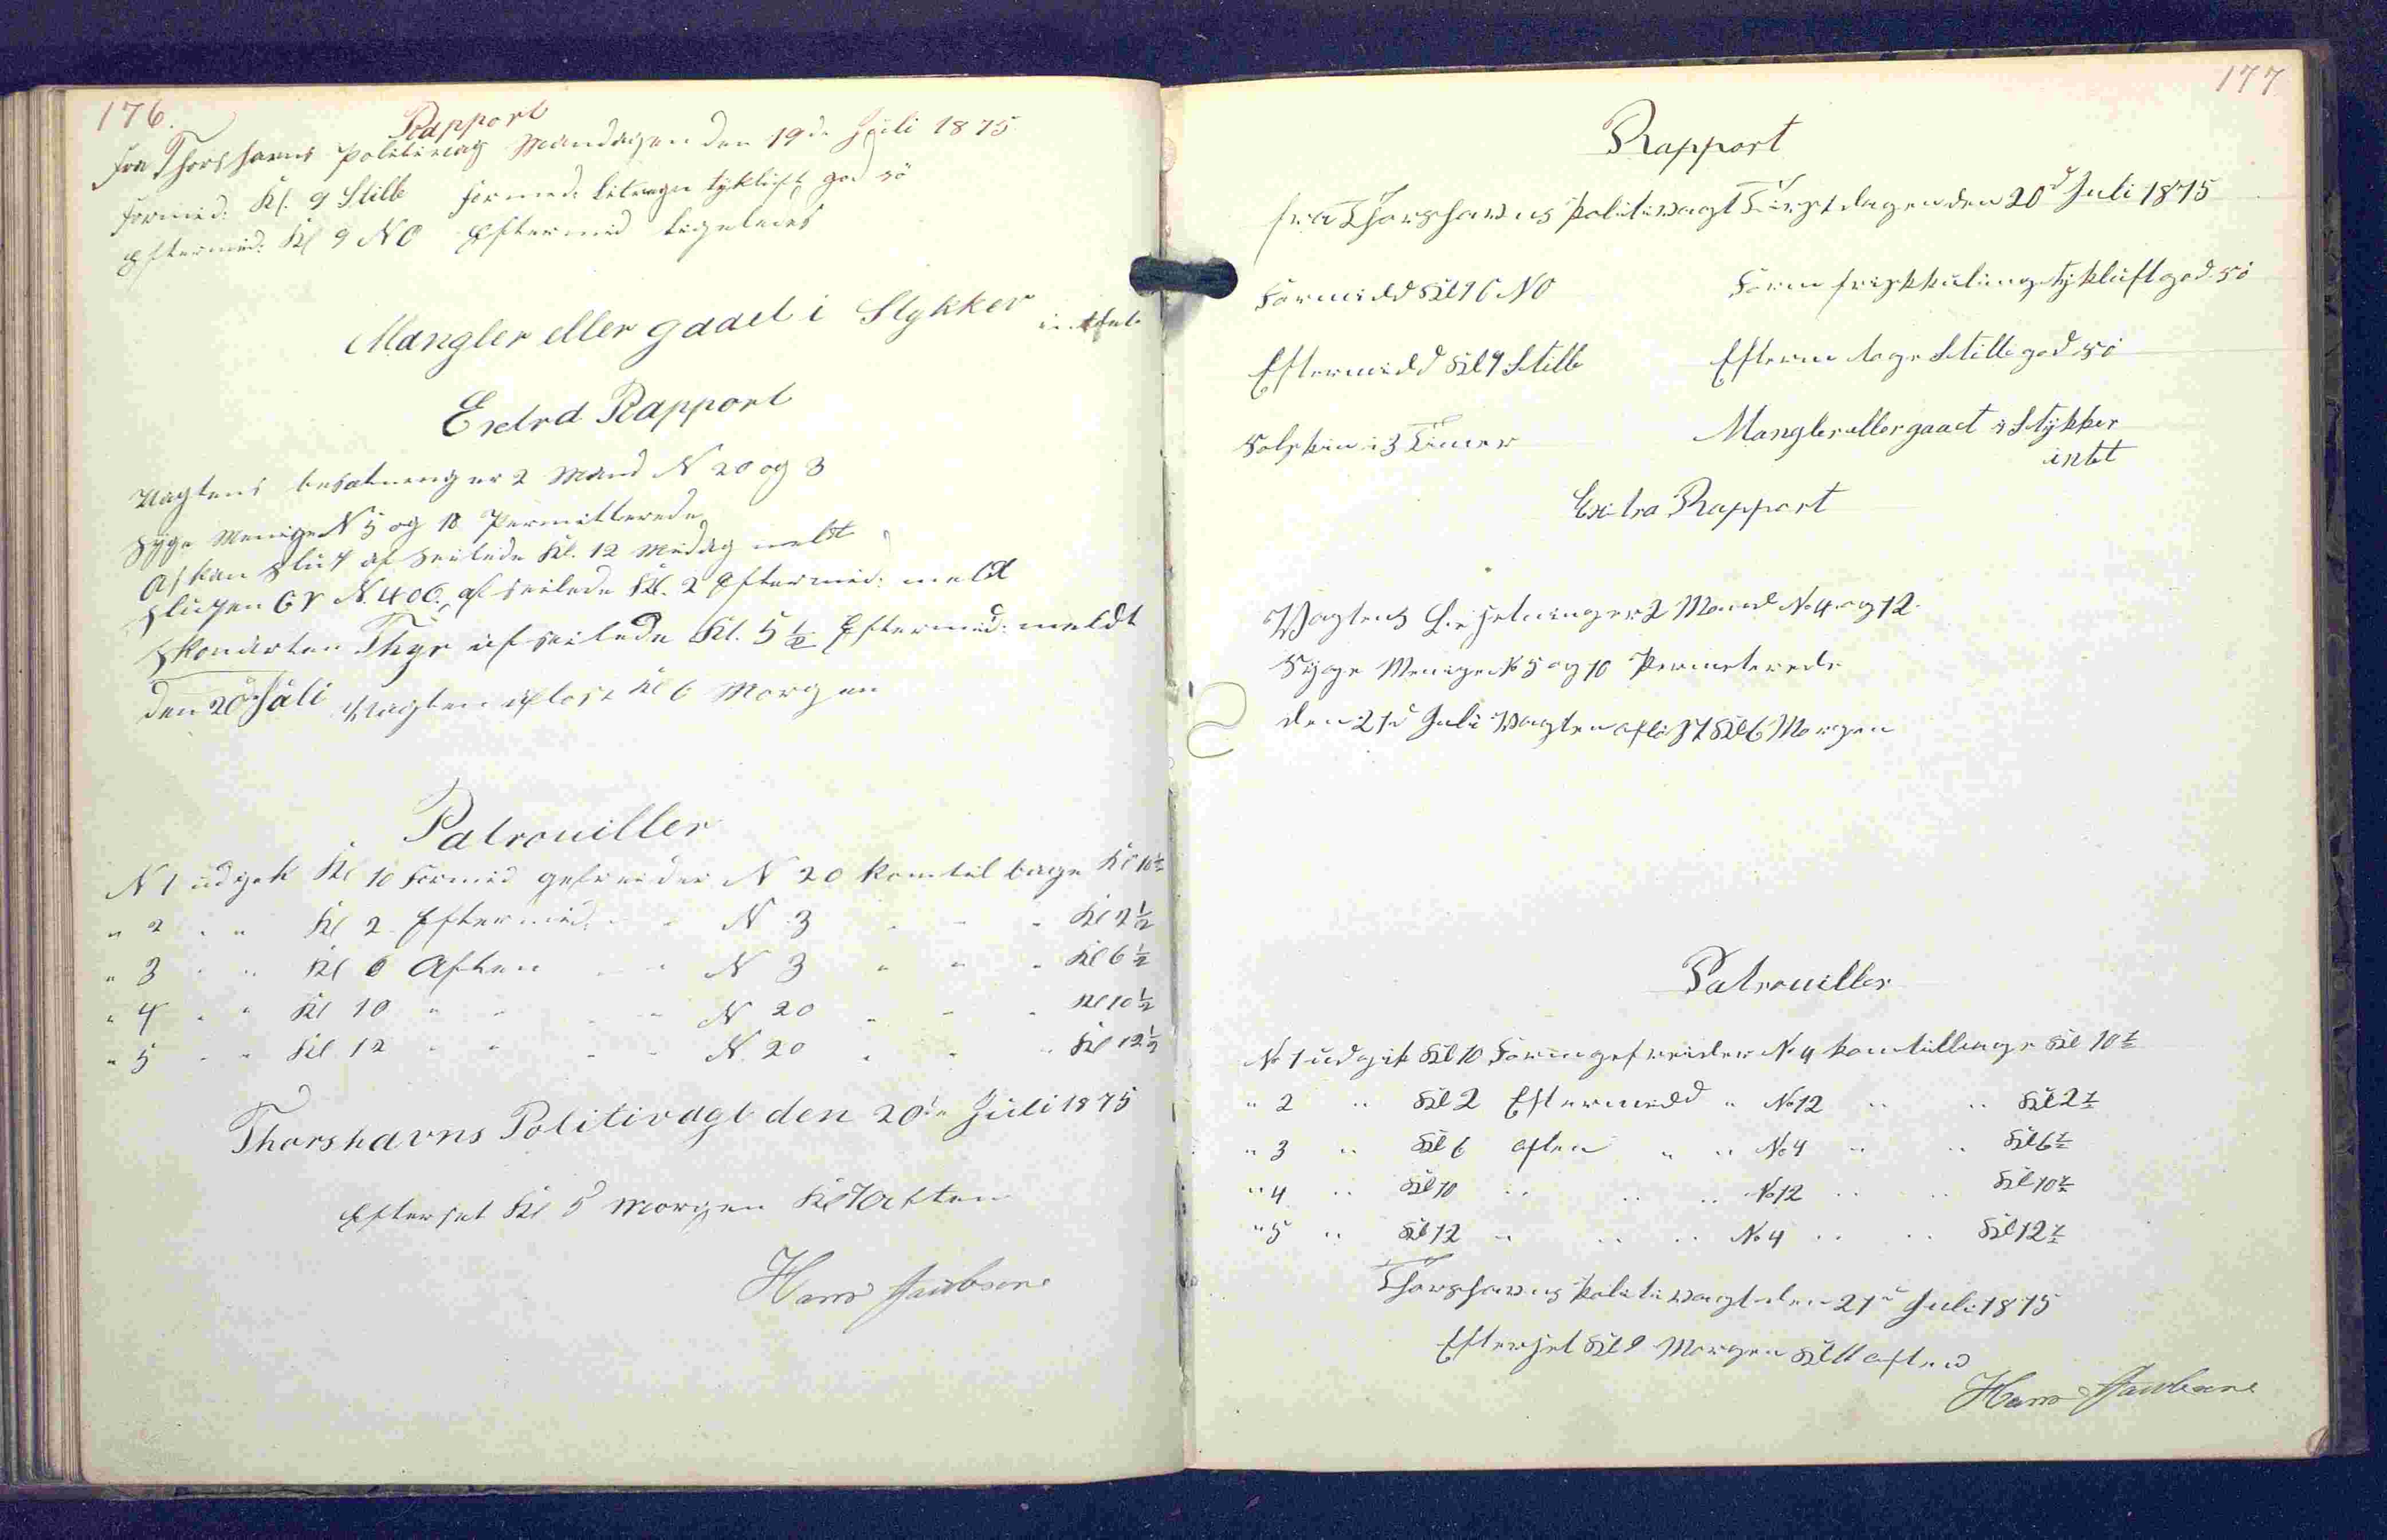 176.
Rapport
fra Thorshavns Politivagt Mandagen den 19de Juli 1875
Formid: Kl. 9 Stille Formid: tykluft god sö
Eftermid: Kl 9 NO Eftermid ligeledes
Mangler eller gaaet i Stykker intet
Extra Rapport
Vagtens besætning er 2 Mand N 20 og 3
Syge Menige N 5 og 10 Permitterede
Slup afseilede Kl. 12 Midag meldt
Slupen N. 406 afseilede Kl. 2 Eftermid: meldt
Skonnerten Thyr afseilede Kl. 5 1/2 Eftermid: meldt
den 20de Juli Vagten aflöst Kl 6 Morgen
Patrouiller
N 1 udgik Kl 10 Formid gefreider N 20 kom tilbage Kl 10 1/2
" 2 " " Kl 2 Eftermid. " " N 3 " " " Kl 2 1/2
" 3 " " Kl 6 Aften " " N 3 " " " Kl 6 1/2
" 4 " " Kl 10 " " " " N 20 " " " Kl 10 1/2
" 5 " " Kl 12 " " " " N. 20 " " " Kl 12 1/2
Thorshavns Politivagt den 20de Juli 1875
Efterset Kl 5 Morgen Kl Aften
Hans Jacobsen
177
Rapport
fra Thorshavns Politivagt Tirsdagen den 20d Juli 1875
Formidd Kl 9 NO Form frisk kuling tykluft god sö
Eftermidd Kl 9 Stille Efterm Stille god sö
Solskin i 3 Timer Mangler eller gaaet i Stykker
intet
Extra Rapport
Vagtens Besetning er 2 Mand No 4 og 12
Syge Menige No 5 og 10 Permeterede
den 21d Juli Vagten aflöst Kl 6 Morgen
Patrouiller
No 1 udgik Kl 10 Form gefreider No 4 kom tilbage Kl 10 1/2
" 2 " Kl 2 Eftermidd " No 12 " " Kl 2 1/2
" 3 " Kl 6 aften " " No 4 " " Kl 6 1/2
" 4 " Kl 10 " " " No 12 " " Kl 10 1/2
" 5 " Kl 12 " " " No 4 " " Kl 12 1/2
Thorshavns Politivagt den 21d Juli 1875
Efterset Kl 9 Morgen Kl 11 aften
Hans Jacobsen